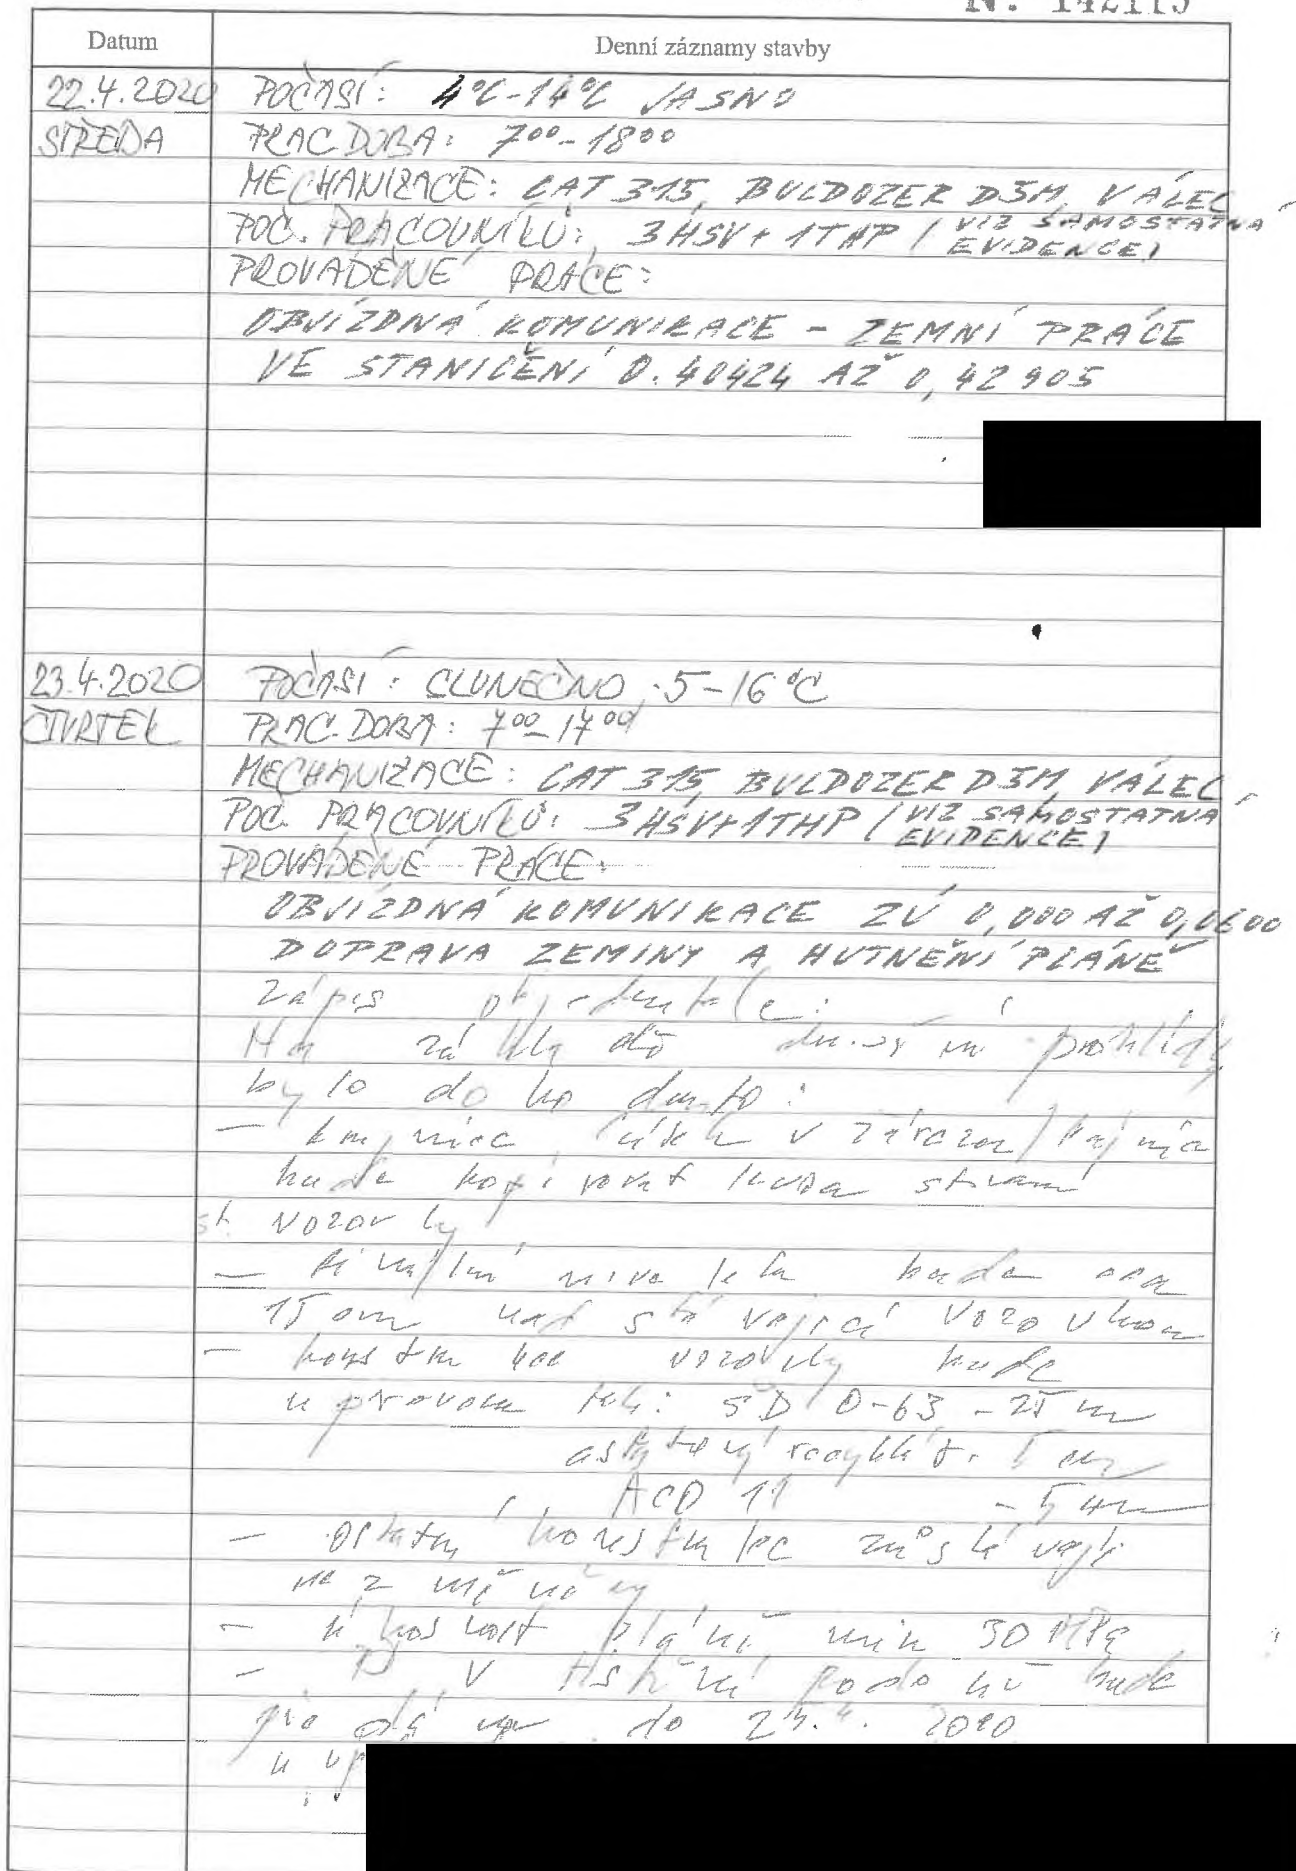 Datum
Denní záznamy stavby
22.4.2020 POČASÍ: 4°C-14°C JASNO
STŘEDA PRAC.DOBA: 7⁰⁰-18⁰⁰
MECHANIZACE: CAT 315, BULDOZER D5M, VÁLEC
POČ. PRACOVNÍKŮ: 3HSV + 1THP (VIZ SAMOSTATNÁ EVIDENCE)
PROVÁDĚNÉ PRÁCE:
OBJÍZDNÁ KOMUNIKACE - ZEMNÍ PRÁCE
VE STANIČENÍ 0.40424 AŽ 0,42905
23.4.2020 POČASÍ: SLUNEČNO 5-16°C
ČTVRTEK PRAC.DOBA: 7⁰⁰-17⁰⁰
MECHANIZACE: CAT 315, BULDOZER D5M, VÁLEC
POČ. PRACOVNÍKŮ: 3HSV+1THP (VIZ SAMOSTATNÁ EVIDENCE)
PROVÁDĚNÉ PRÁCE:
OBJÍZDNÁ KOMUNIKACE ZÚ 0,000 AŽ 0,0600
DOPRAVA ZEMINY A HUTNĚNÍ PLÁNĚ
zápis objednatele:
Na základě dnešní prohlídky
bylo dohodnuto:
- v
bude kopírovat stranu
st. vozovky
- niveleta bude cca
15 cm nad stávající vozovkou
- konstrukce vozovky bude
upravena : ŠD 0-63 - 25 cm
asfaltový recyklát - 5 cm
ACO 11 - 5 cm
- ostatní konstrukce zůstávají
nezměněny
- únosnost pláně min 30 MPa
- v podobě bude
do 2020